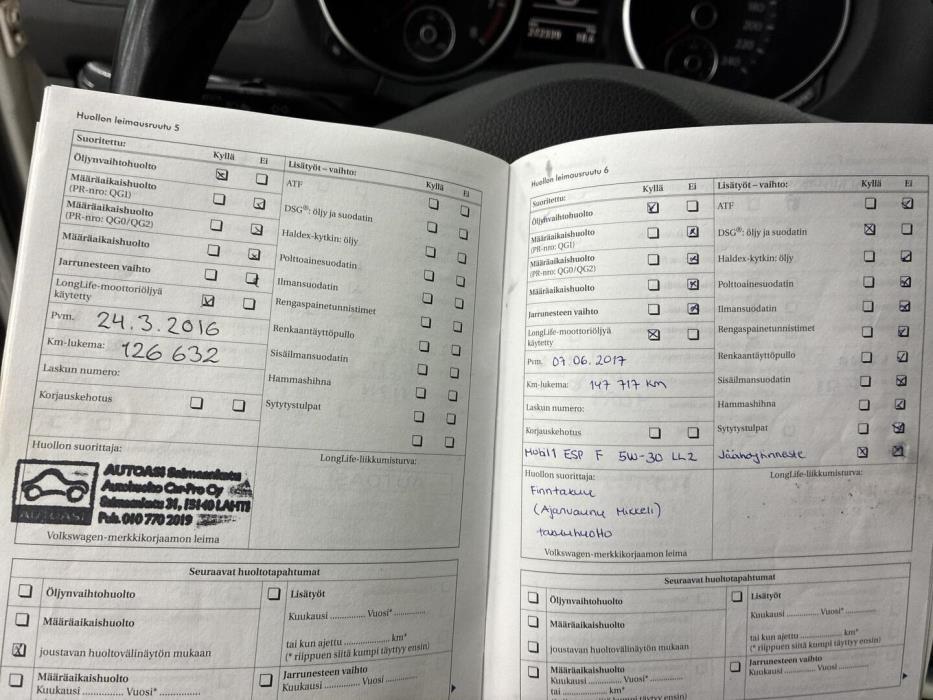 Huollon leimausruutu 5
Suoritettu:
Kyllä Ei
Öljynvaihtohuolto
Määräaikaishuolto
(PR-nro: QG1)
Määräaikaishuolto
(PR-nro: QG0/QG2)
Määräaikaishuolto
Jarrunesteen vaihto
LongLife-moottoriöljyä
käytetty
Pvm. 24.3.2016
Km-lukema: 126 632
Laskun numero:
Korjauskehotus
Huollon suorittaja:
AUTOASI Saimaankatu
Autohuolto Car-Pro Oy
Saimaankatu 31, 15140 LAHTI
Puh. 010 770 2019
AUTOASI
Volkswagen-merkkikorjaamon leima
Lisätyöt – vaihto:
Kyllä Ei
ATF
DSG®: öljy ja suodatin
Haldex-kytkin: öljy
Polttoainesuodatin
Ilmansuodatin
Rengaspainetunnistimet
Renkaantäyttöpullo
Sisäilmansuodatin
Hammashihna
Sytytystulpat
LongLife-liikkumisturva:
Seuraavat huoltotapahtumat
Öljynvaihtohuolto
Määräaikaishuolto
joustavan huoltovälinäytön mukaan
Määräaikaishuolto
Kuukausi .............. Vuosi* ..............
Lisätyöt
Kuukausi .............. Vuosi* ..............
tai kun ajettu .................... km*
(* riippuen siitä kumpi täyttyy ensin)
Jarrunesteen vaihto
Kuukausi .............. Vuosi ..............
Huollon leimausruutu 6
Suoritettu:
Kyllä Ei
Öljynvaihtohuolto
Määräaikaishuolto
(PR-nro: QG1)
Määräaikaishuolto
(PR-nro: QG0/QG2)
Määräaikaishuolto
Jarrunesteen vaihto
LongLife-moottoriöljyä
käytetty
Pvm. 07.06.2017
Km-lukema: 147 717 km
Laskun numero:
Korjauskehotus
Mobil1 ESP F 5W-30 LL2
Huollon suorittaja:
(Ajanvaunu Mikkeli)
Volkswagen-merkkikorjaamon leima
Lisätyöt – vaihto:
Kyllä Ei
ATF
DSG®: öljy ja suodatin
Haldex-kytkin: öljy
Polttoainesuodatin
Ilmansuodatin
Rengaspainetunnistimet
Renkaantäyttöpullo
Sisäilmansuodatin
Hammashihna
Sytytystulpat
Jäähdytinneste
LongLife-liikkumisturva:
Seuraavat huoltotapahtumat
Öljynvaihtohuolto
Määräaikaishuolto
joustavan huoltovälinäytön mukaan
Määräaikaishuolto
Kuukausi .............. Vuosi* ..............
tai .................... km*
Lisätyöt
Kuukausi .............. Vuosi* ..............
tai kun ajettu .................... km*
(* riippuen siitä kumpi täyttyy ensin)
Jarrunesteen vaihto
Kuukausi .............. Vuosi ..............